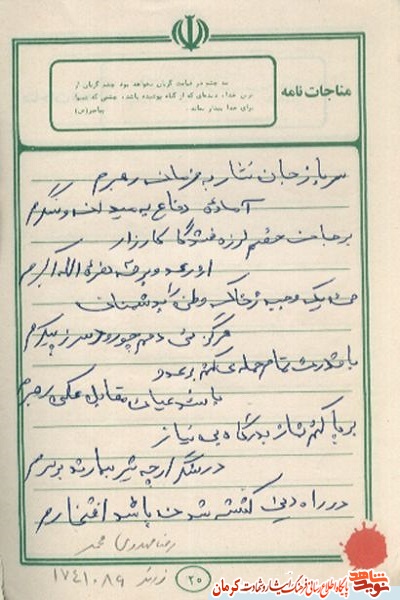 مناجات نامه
سه چشم در قیامت گریان نخواهد بود چشم گریان از
ترس خدا، دیده‌ای که از گناه پوشیده باشد، چشمی که شبها
برای خدا بیدار بماند.
پیامبر(ص)
سرباز جان نثار به فرمان رهبرم
آماده دفاع به میدان و سنگرم
بر جان خصم لرزه فتد گاه کارزار
از رعد و برق نعره الله اکبرم
یک وجب ز خاک وطن را به دشمنان
هرگز نمی دهم چو رود سر ز پیکرم
با قدرت تمام حمله کنم بر عدو
باشد عیان مقابل عکس رهبرم
بر پا کنم نماز بدرگاه بی نیاز
در سنگر ارچه تیر ببارند بر سرم
در راه دین کشته شدن باشد افتخارم
رضا مهدوی
۱۷۴۱۰۸۹
۲۵
شاهد
نوید
پایگاه اطلاع رسانی فرهنگ ایثار و شهادت کرمان